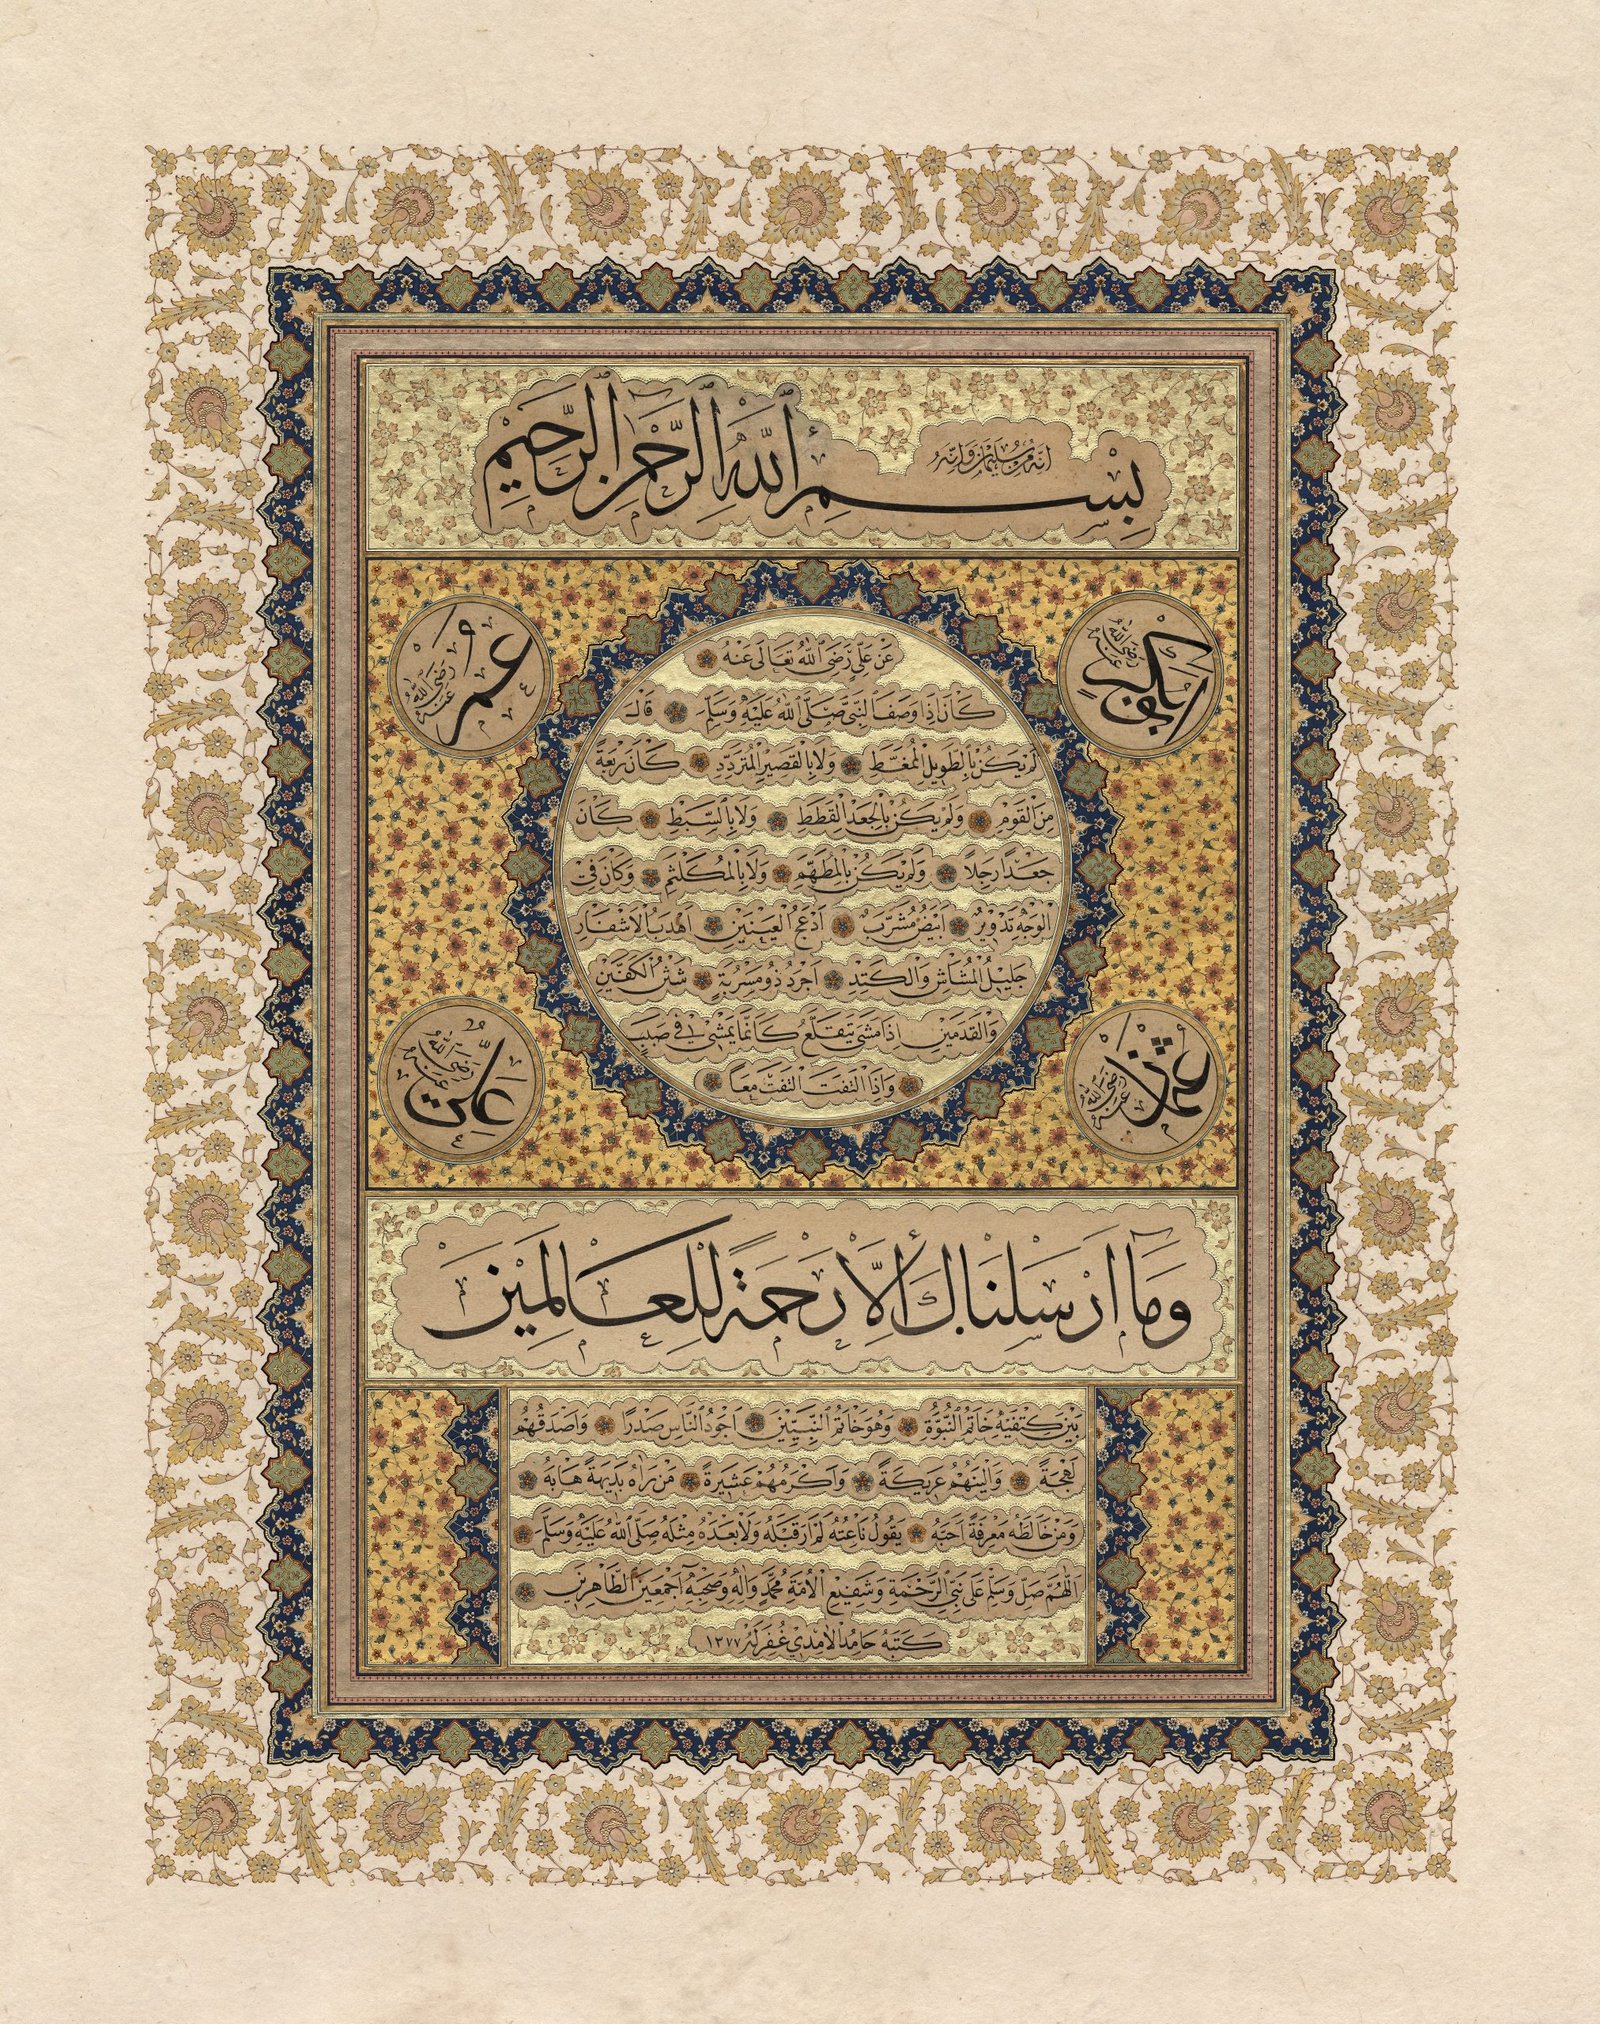 إنه من سليمان وإنه
بِسْمِ ٱللهِ ٱلرَّحْمٰنِ ٱلرَّحِيْمِ
ابو بكر رضي الله عنه
عمر رضي الله عنه
عَنْ عَلِيٍّ رَضِيَ اللهُ تَعَالَى عَنْهُ
كَانَ اِذَا وَصَفَ النَّبِيَّ صَلَّى اللهُ عَلَيْهِ وَسَلَّمَ قَالَ
لَمْ يَكُنْ بِالطَّوِيلِ الْمُمَّغِطِ وَلَا بِالْقَصِيرِ الْمُتَرَدِّدِ كَانَ رَبْعَةً
مِنَ الْقَوْمِ وَلَمْ يَكُنْ بِالْجَعْدِ الْقَطَطِ وَلَا بِالسَّبِطِ كَانَ
جَعْدًا رَجِلًا وَلَمْ يَكُنْ بِالْمُطَهَّمِ وَلَا بِالْمُكَلْثَمِ وَكَانَ فِي
الْوَجْهِ تَدْوِيرٌ اَبْيَضُ مُشَرَّبٌ اَدْعَجُ الْعَيْنَيْنِ اَهْدَبُ الْاَشْفَارِ
جَلِيلُ الْمُشَاشِ وَالْكَتَدِ اَجْرَدُ ذُو مَسْرُبَةٍ شَثْنُ الْكَفَّيْنِ
وَالْقَدَمَيْنِ اِذَا مَشٰى تَقَلَّعَ كَاَنَّمَا يَمْشِي فِي صَبَبٍ
وَاِذَا الْتَفَتَ الْتَفَتَ مَعًا
عثمان رضي الله عنه
علي رضي الله عنه
وَمَآ اَرْسَلْنَاكَ اِلَّا رَحْمَةً لِلْعَالَمِينَ
بَيْنَ كَتِفَيْهِ خَاتَمُ النُّبُوَّةِ وَهُوَ خَاتَمُ النَّبِيِّينَ اَجْوَدُ النَّاسِ صَدْرًا وَاَصْدَقُهُمْ
لَهْجَةً وَاَلْيَنُهُمْ عَرِيكَةً وَاَكْرَمُهُمْ عَشِيرَةً مَنْ رَاٰهُ بَدِيهَةً هَابَهُ
وَمَنْ خَالَطَهُ مَعْرِفَةً اَحَبَّهُ يَقُولُ نَاعِتُهُ لَمْ اَرَ قَبْلَهُ وَلَا بَعْدَهُ مِثْلَهُ صَلَّى اللهُ عَلَيْهِ وَسَلَّمَ
اَللّٰهُمَّ صَلِّ وَسَلِّمْ عَلٰى نَبِيِّ الرَّحْمَةِ وَشَفِيعِ الْاُمَّةِ مُحَمَّدٍ وَاٰلِهِ وَصَحْبِهِ اَجْمَعِينَ الطَّاهِرِينَ
كَتَبَهُ حَامِدُ الْاٰمِدِي غُفِرَ لَهُ ١٣٧٧